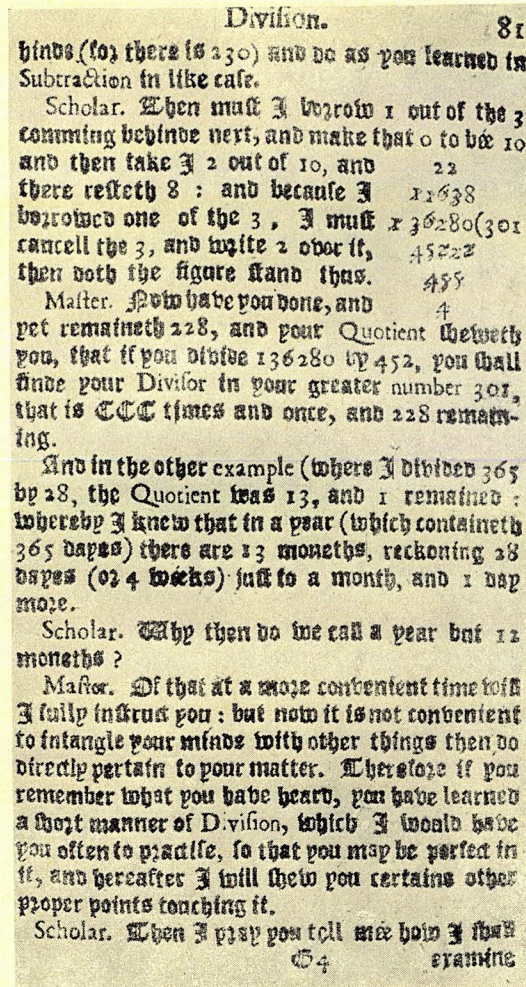 Diviſion. 81
hinde (for there is 230) and do as you learned in
Subtraction in like caſe.
Scholar. Then muſt I borrow 1 out of the 3
comming behinde next, and make that 0 to bee 10
and then take I 2 out of 10, and 22
there reſteth 8 : and becauſe I 11638
borrowed one of the 3, I muſt 136280(301
cancell the 3, and write 2 over it, 45222
then doth the figure ſtand thus. 455
Maſter. Now have you done, and 4
yet remaineth 228, and your Quotient ſheweth
you, that if you divide 136280 by 452, you ſhall
finde your Diviſor in your greater number 301,
that is CCC times and once, and 228 remain-
ing.
And in the other example (where I divided 365
by 28, the Quotient was 13, and 1 remained :
whereby I knew that in a year (which containeth
365 dayes) there are 13 moneths, reckoning 28
dayes (or 4 weeks) juſt to a month, and 1 day
more.
Scholar. Why then do we call a year but 12
moneths ?
Maſter. Of that at a more convenient time will
I fully inſtruct you : but now it is not convenient
to intangle your minde with other things then do
directly pertain to your matter. Therefore if you
remember what you have heard, you have learned
a ſhort manner of Diviſion, which I would have
you often to practiſe, ſo that you may be perfect in
it, and hereafter I will ſhew you certaine other
proper points touching it.
Scholar. Then I pray you tell mee how I ſhall
G4 examine